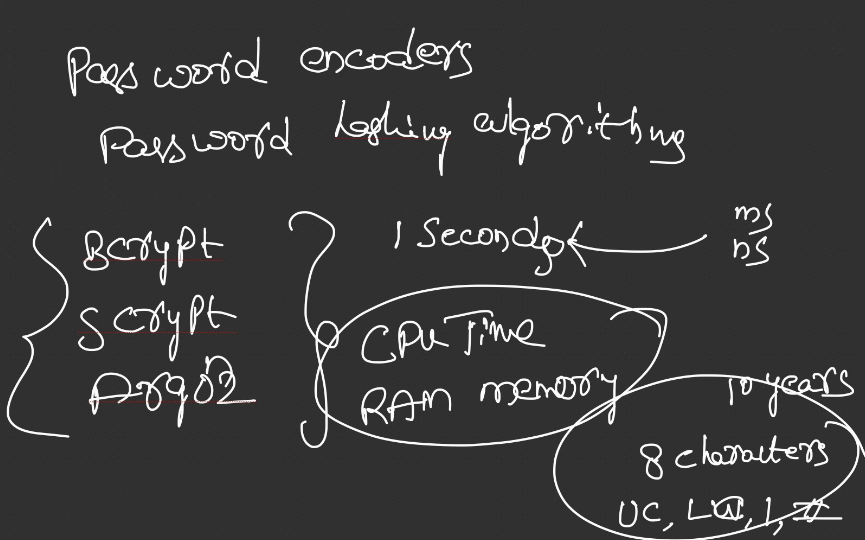 Password encoders
Password hashing algorithms
Bcrypt
Scrypt
Argon2
1 Second
ms
ns
CPU Time
RAM memory
10 years
8 characters
UC, LC, 1, #